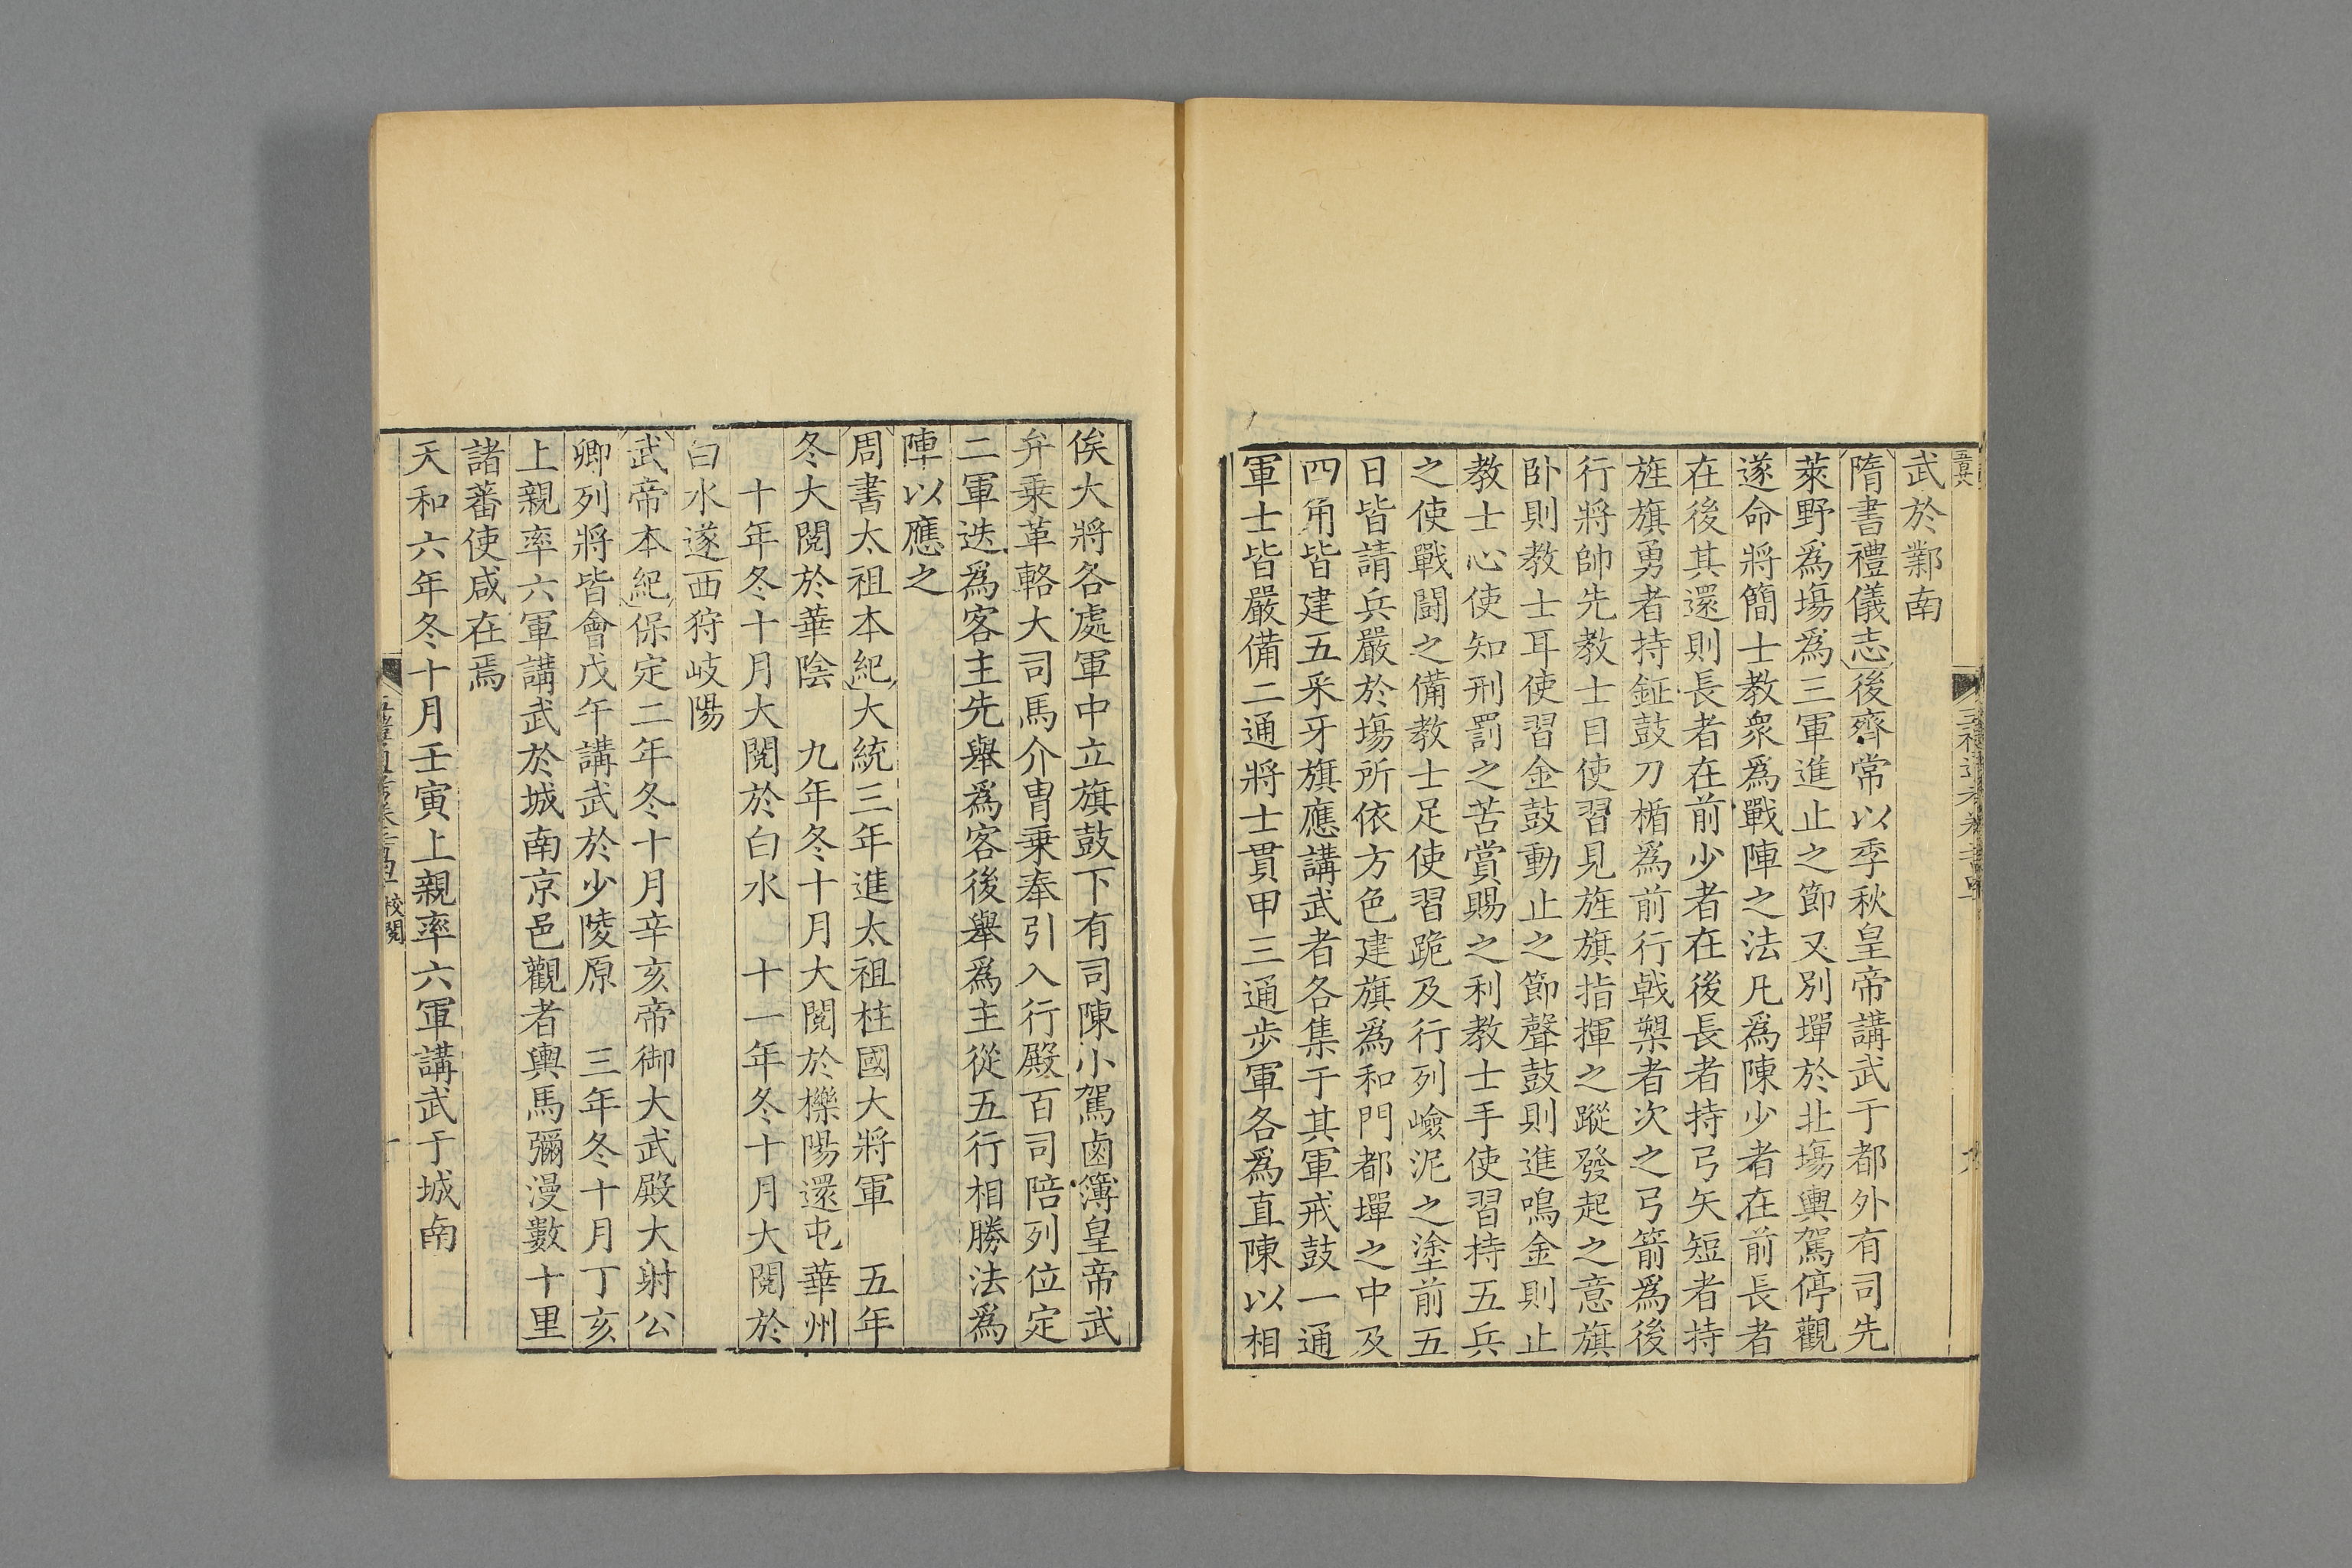 武於鄴南
隋書禮儀志後齊常以季秋皇帝講武于都外有司先
萊野爲塲爲三軍進止之節又別墠於北塲輿駕停觀
遂命將簡士教衆爲戰陣之法凡爲陳少者在前長者
在後其還則長者在前少者在後長者持弓矢短者持
旌旗勇者持鉦鼓刀楯爲前行戟槊者次之弓箭爲後
行將帥先教士目使習見旌旗指揮之蹤發起之意旗
卧則教士耳使習金鼓動止之節聲鼓則進鳴金則止
教士心使知刑罰之苦賞賜之利教士手使習持五兵
之使戰闘之備教士足使習跪及行列嶮泥之塗前五
日皆請兵嚴於塲所依方色建旗爲和門都墠之中及
四角皆建五采牙旗應講武者各集于其軍戒鼓一通
軍士皆嚴備二通將士貫甲三通步軍各爲直陳以相
俟大將各處軍中立旗鼓下有司陳小駕鹵簿皇帝武
弁乗革輅大司馬介胄乗奉引入行殿百司陪列位定
二軍迭爲客主先舉爲客後舉爲主從五行相勝法爲
陣以應之
周書太祖本紀大統三年進太祖柱國大將軍　五年
冬大閱於華陰　九年冬十月大閱於櫟陽還屯華州
十年冬十月大閱於白水　十一年冬十月大閱於
白水遂西狩岐陽
武帝本紀保定二年冬十月辛亥帝御大武殿大射公
卿列將皆會戊午講武於少陵原　三年冬十月丁亥
上親率六軍講武於城南京邑觀者輿馬彌漫數十里
諸蕃使咸在焉
天和六年冬十月壬寅上親率六軍講武于城南
校閱